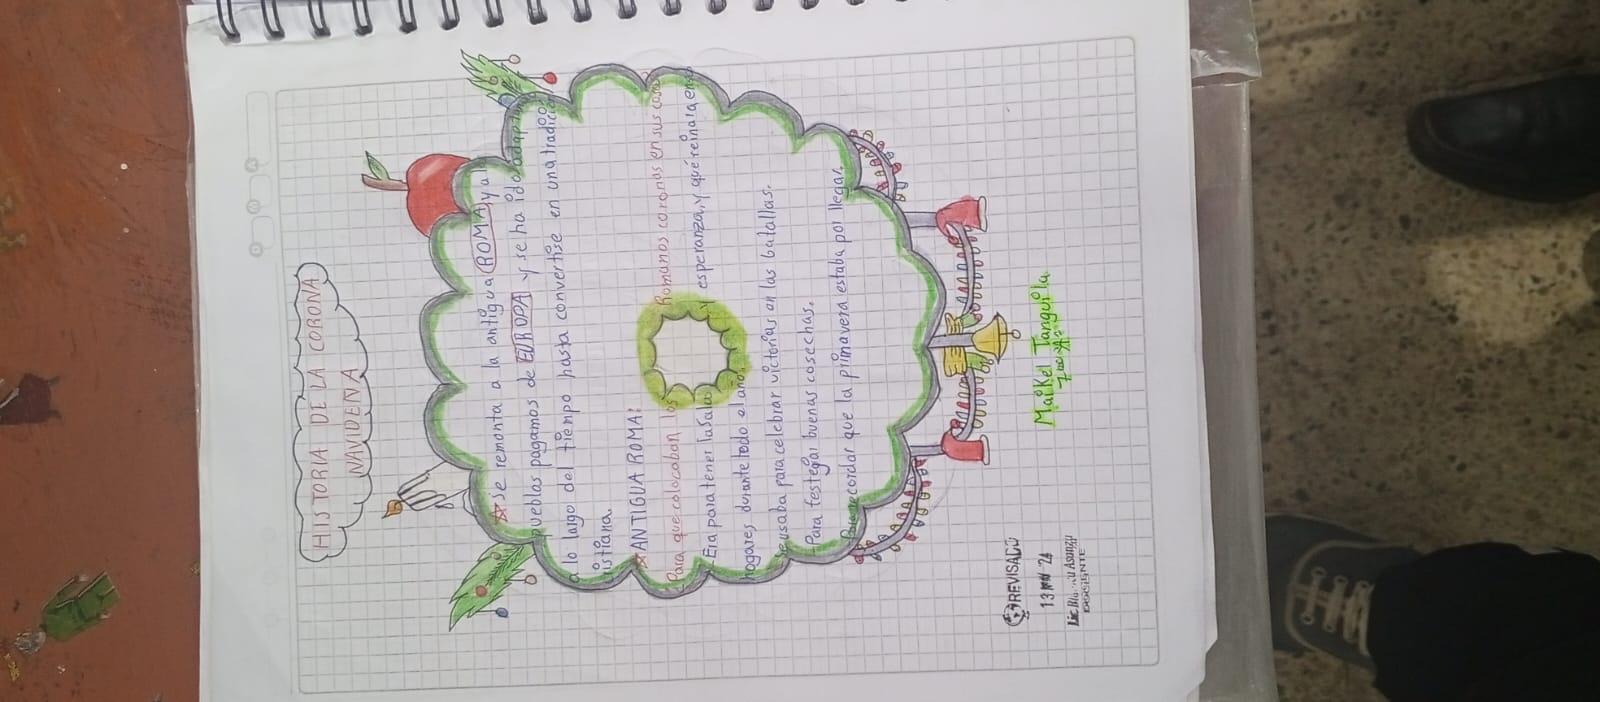 HISTORIA DE LA CORONA
NAVIDEÑA
se remonta a la antigua ROMA y a
pueblas pagamos de EUROPA y se ha ido adapt
a lo largo del tiempo hasta convertise en una tradició
istiana.
ANTIGUA ROMA:
Para que colocaban los Romanos coronas en sus casas
Era para tener la salu y esperanza, y que reinara en
hogares durante todo el año.
se usaba para celebrar victorias en las batallas.
Para festejar buenas cosechas.
Para recordar que la primavera estaba por llegar.
Maikel Tanguila
REVISADO
13 24
Lic
DOCENTE